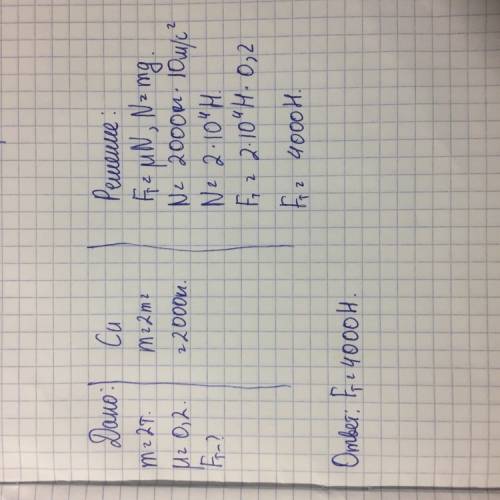 Дано:
m=2т.
μ=0,2.
Fт-?
Си
m=2т=
=2000кг.
Решение:
Fт=μN, N=mg.
N=2000кг·10м/с²
N=2·10⁴Н.
Fт=2·10⁴Н·0,2
Fт=4000Н.
Ответ: Fт=4000Н.